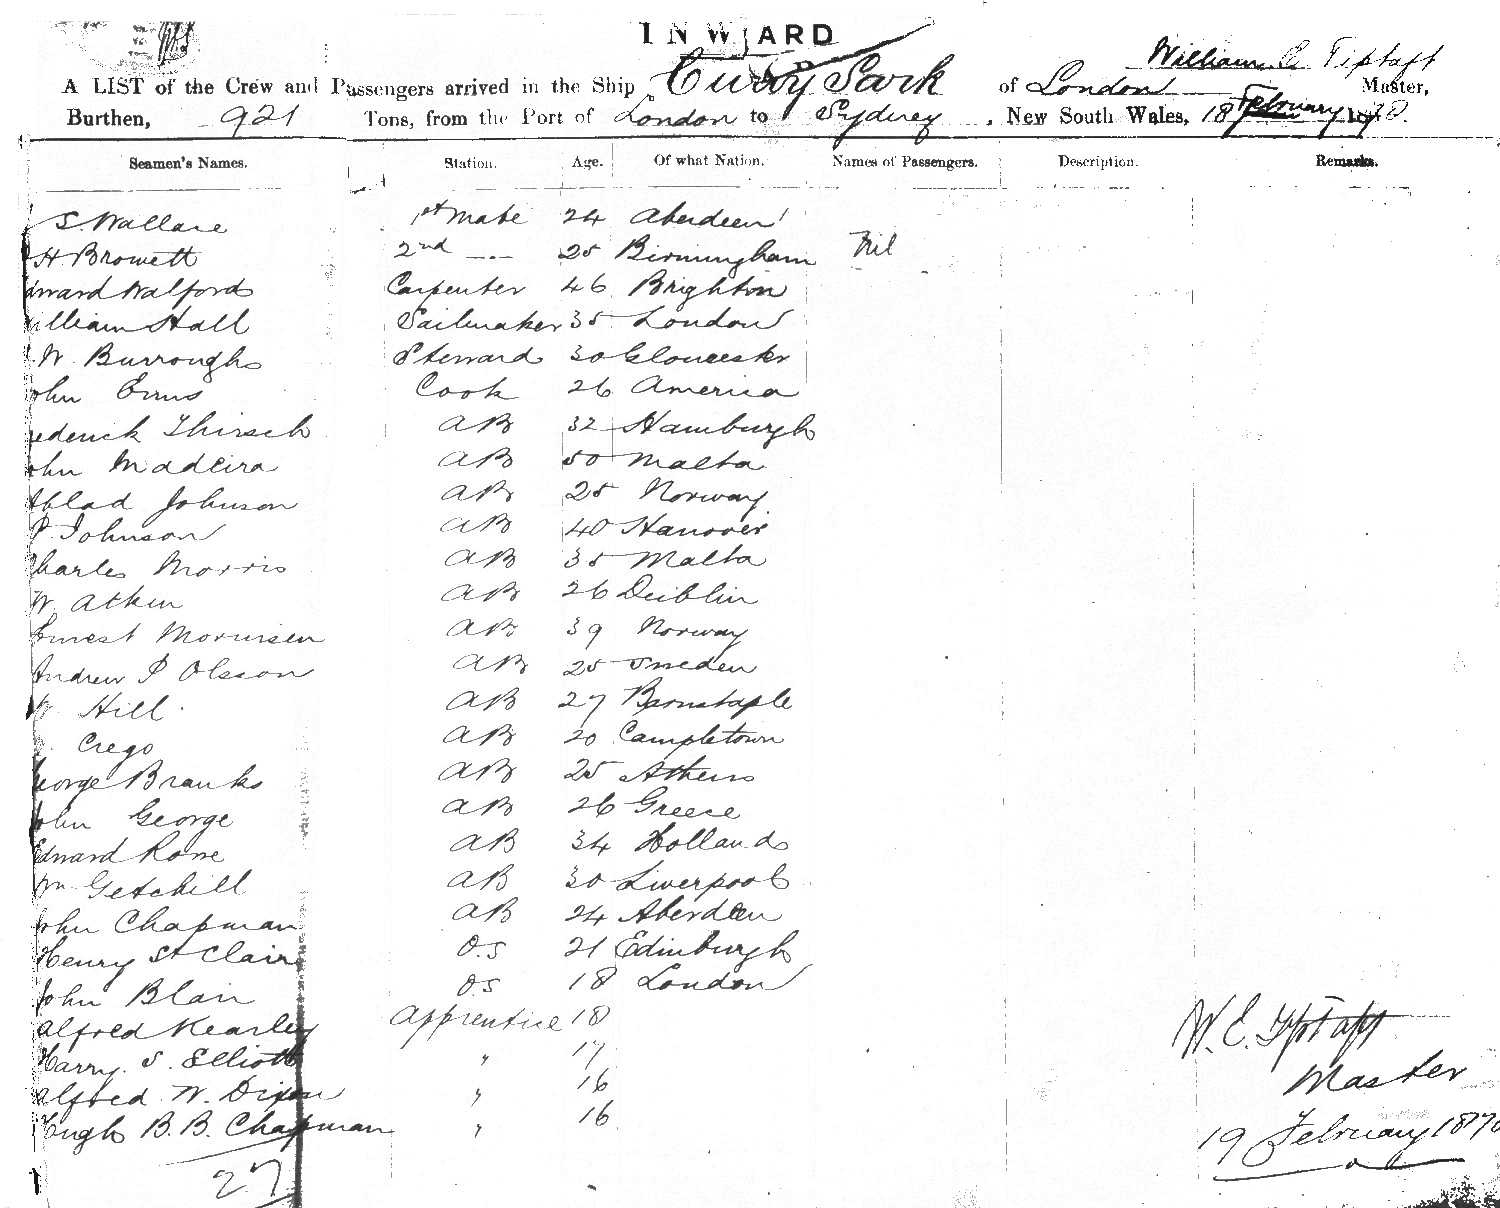 INWARD
William E Tiptaft
A LIST of the Crew and Passengers arrived in the Ship Cutty Sark of London Master,
Burthen, 921 Tons, from the Port of London to Sydney, New South Wales, 18 February
Seamen's Names. Station. Age. Of what Nation. Names of Passengers. Description. Remarks.
S. Wallace 1st mate 24 Aberdeen
H Browett 2nd 25 Birmingham Nil
dward Walford Carpenter 46 Brighton
illiam Hall Sailmaker 35 London
W. Burroughs Steward 30 Gloucester
ohn Cook 26 America
rederick Thirsch AB 32 Hamburgh
ohn Madeira AB 50 Malta
Johnson AB 25 Norway
P Johnson AB 40 Hanover
harles Morris AB 35 Malta
W. Atkin AB 26 Dublin
Ernest AB 39 Norway
Andrew P Olsson AB 25 Sweden
W Hill AB 27 Barnstaple
Crego AB 20 Campletown
George Branks AB 25 Athens
John George AB 26 Greece
Edward Rowe AB 34 Holland
Wm Getchill AB 30 Liverpool
John Chapman AB 24 Aberdeen
Henry St Clair O.S 21 Edinburgh
John Blain O.S 18 London
Alfred Kearley Apprentice 18
Harry. S. Elliott " 17
Alfred W. Dixon " 16
Hugh B. B. Chapman " 16
27
W. E. Tiptaft
Master
19 February 1870